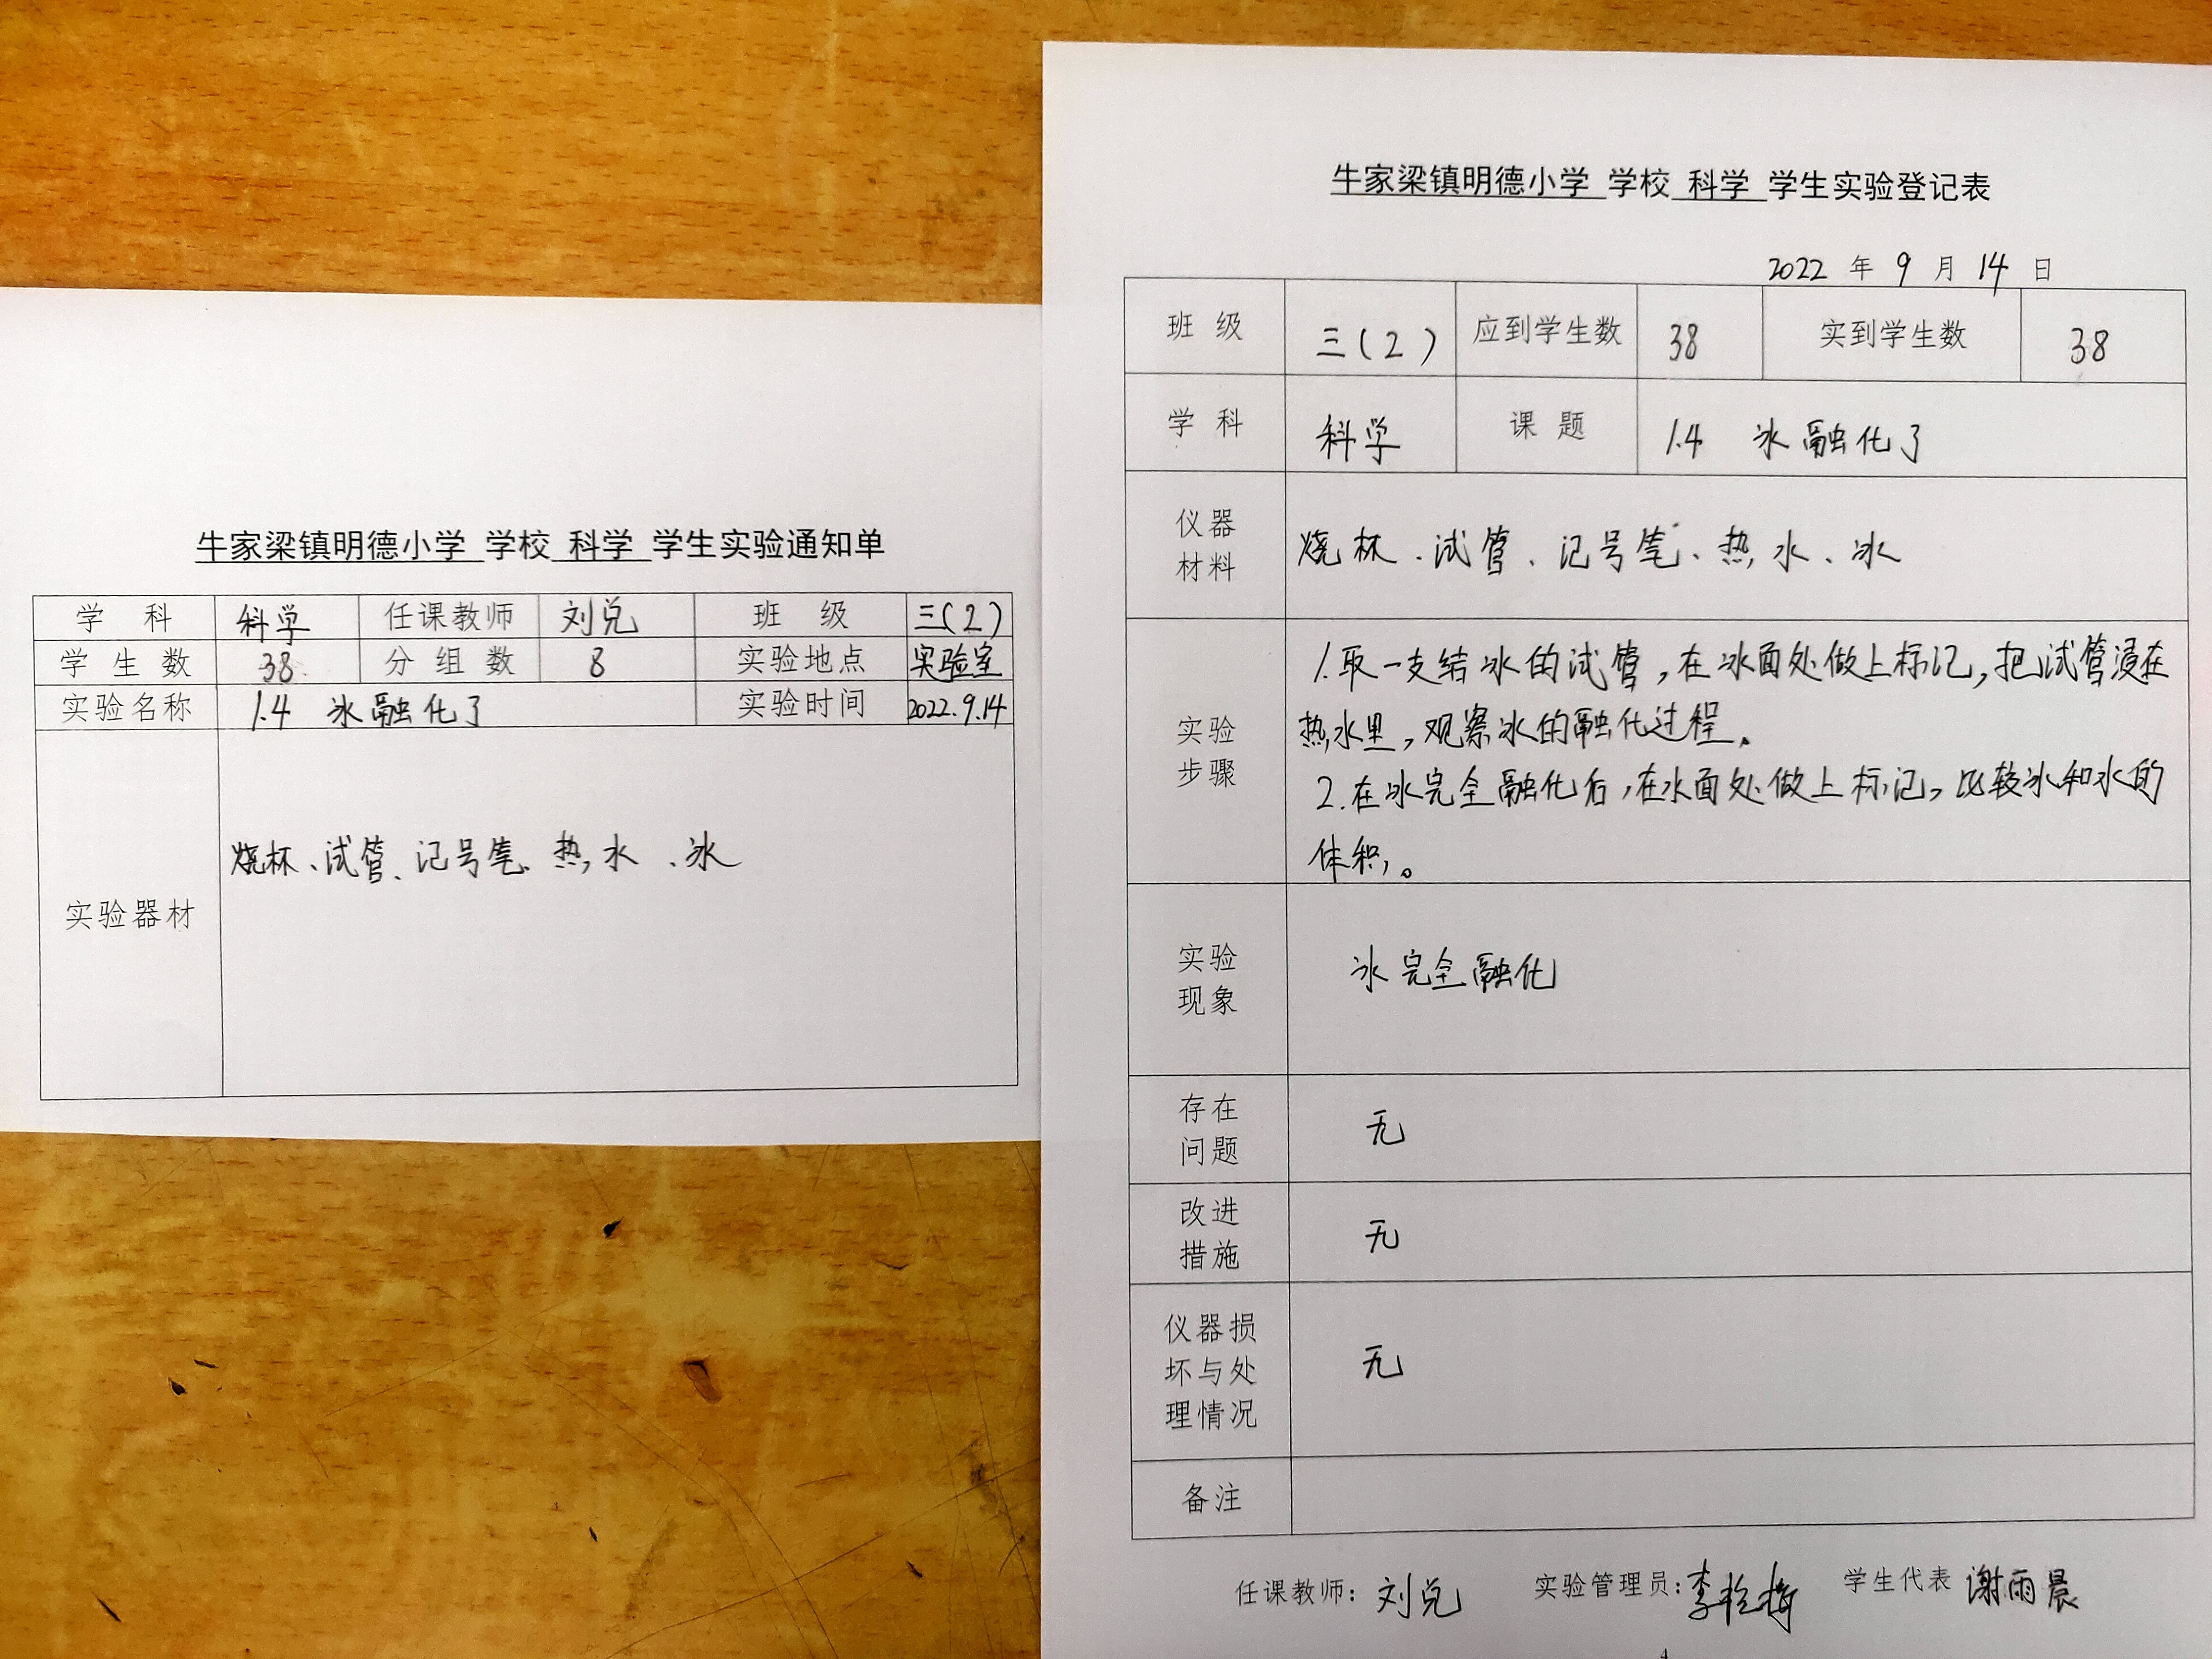 牛家梁镇明德小学 学校 科学 学生实验通知单
学 科 科学 任课教师 刘兑 班 级 三(2)
学 生 数 38 分 组 数 8 实验地点 实验室
实验名称 1.4 冰融化了 实验时间 2022.9.14
实验器材 烧杯、试管、记号笔、热水、冰
牛家梁镇明德小学 学校 科学 学生实验登记表
2022 年 9 月 14 日
班 级 三(2) 应到学生数 38 实到学生数 38
学 科 科学 课 题 1.4 冰融化了
仪器
材料
烧杯、试管、记号笔、热水、冰
实验
步骤
1.取一支结冰的试管,在冰面处做上标记,把试管浸在
热水里,观察冰的融化过程。
2.在冰完全融化后,在水面处做上标记,比较冰和水的
体积。
实验
现象
冰完全融化
存在
问题
无
改进
措施
无
仪器损
坏与处
理情况
无
备注
任课教师: 刘兑 实验管理员: 李 学生代表 谢雨晨
4